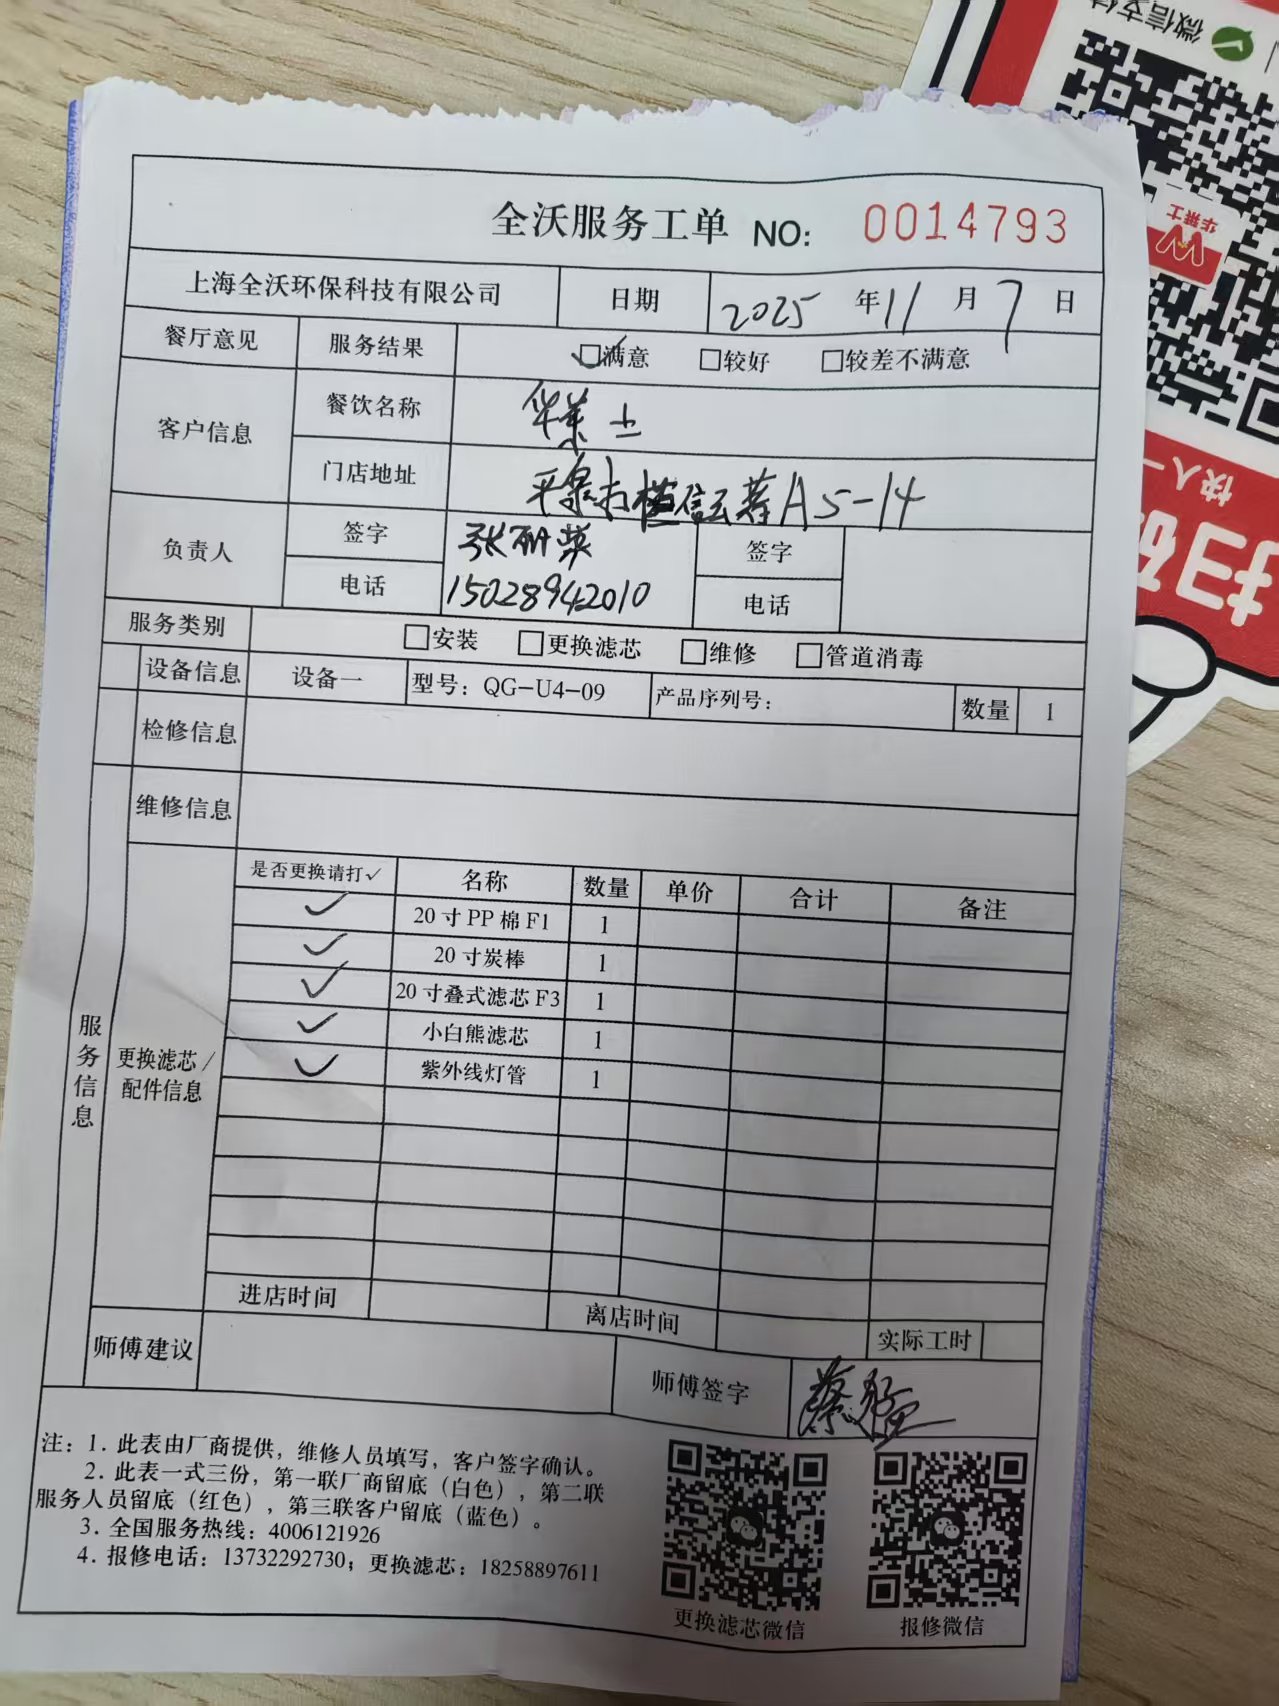 微信支付
华莱士
快人一
扫码
全沃服务工单 NO: 0014793
上海全沃环保科技有限公司 日期 2025 年 11 月 7 日
餐厅意见 服务结果 ☑满意 □较好 □较差不满意
客户信息 餐饮名称 华莱士
门店地址 平泉 A5-14
负责人 签字 张丽荣 签字
电话 15028942010 电话
服务类别 □安装 □更换滤芯 □维修 □管道消毒
设备信息 设备一 型号：QG-U4-09 产品序列号： 数量 1
检修信息
维修信息
服务信息
更换滤芯/配件信息
是否更换请打✓ 名称 数量 单价 合计 备注
✓ 20寸PP棉F1 1
✓ 20寸炭棒 1
✓ 20寸叠式滤芯F3 1
✓ 小白熊滤芯 1
✓ 紫外线灯管 1
进店时间 离店时间 实际工时
师傅建议 师傅签字
注：1. 此表由厂商提供，维修人员填写，客户签字确认。
2. 此表一式三份，第一联厂商留底（白色），第二联
服务人员留底（红色），第三联客户留底（蓝色）。
3. 全国服务热线：4006121926
4. 报修电话：13732292730；更换滤芯：18258897611
更换滤芯微信 报修微信